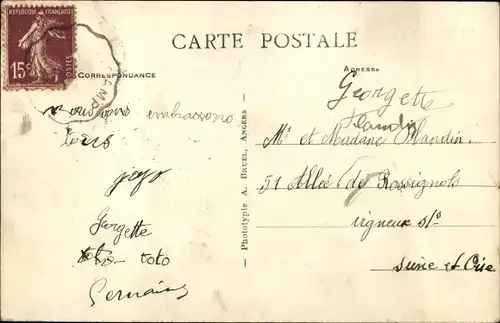 REPUBLIQUE FRANÇAISE
15c
POSTES
CARTE POSTALE
CORRESPONDANCE
ADRESSE
Nous vous embrassons
tous
Georgette
toto
Germaine
Phototypie A. BRUEL, ANGERS
Georgette
Mr et Madane Mandin.
51 Allée de Rossignols
vigneux s/s
seine et Oise